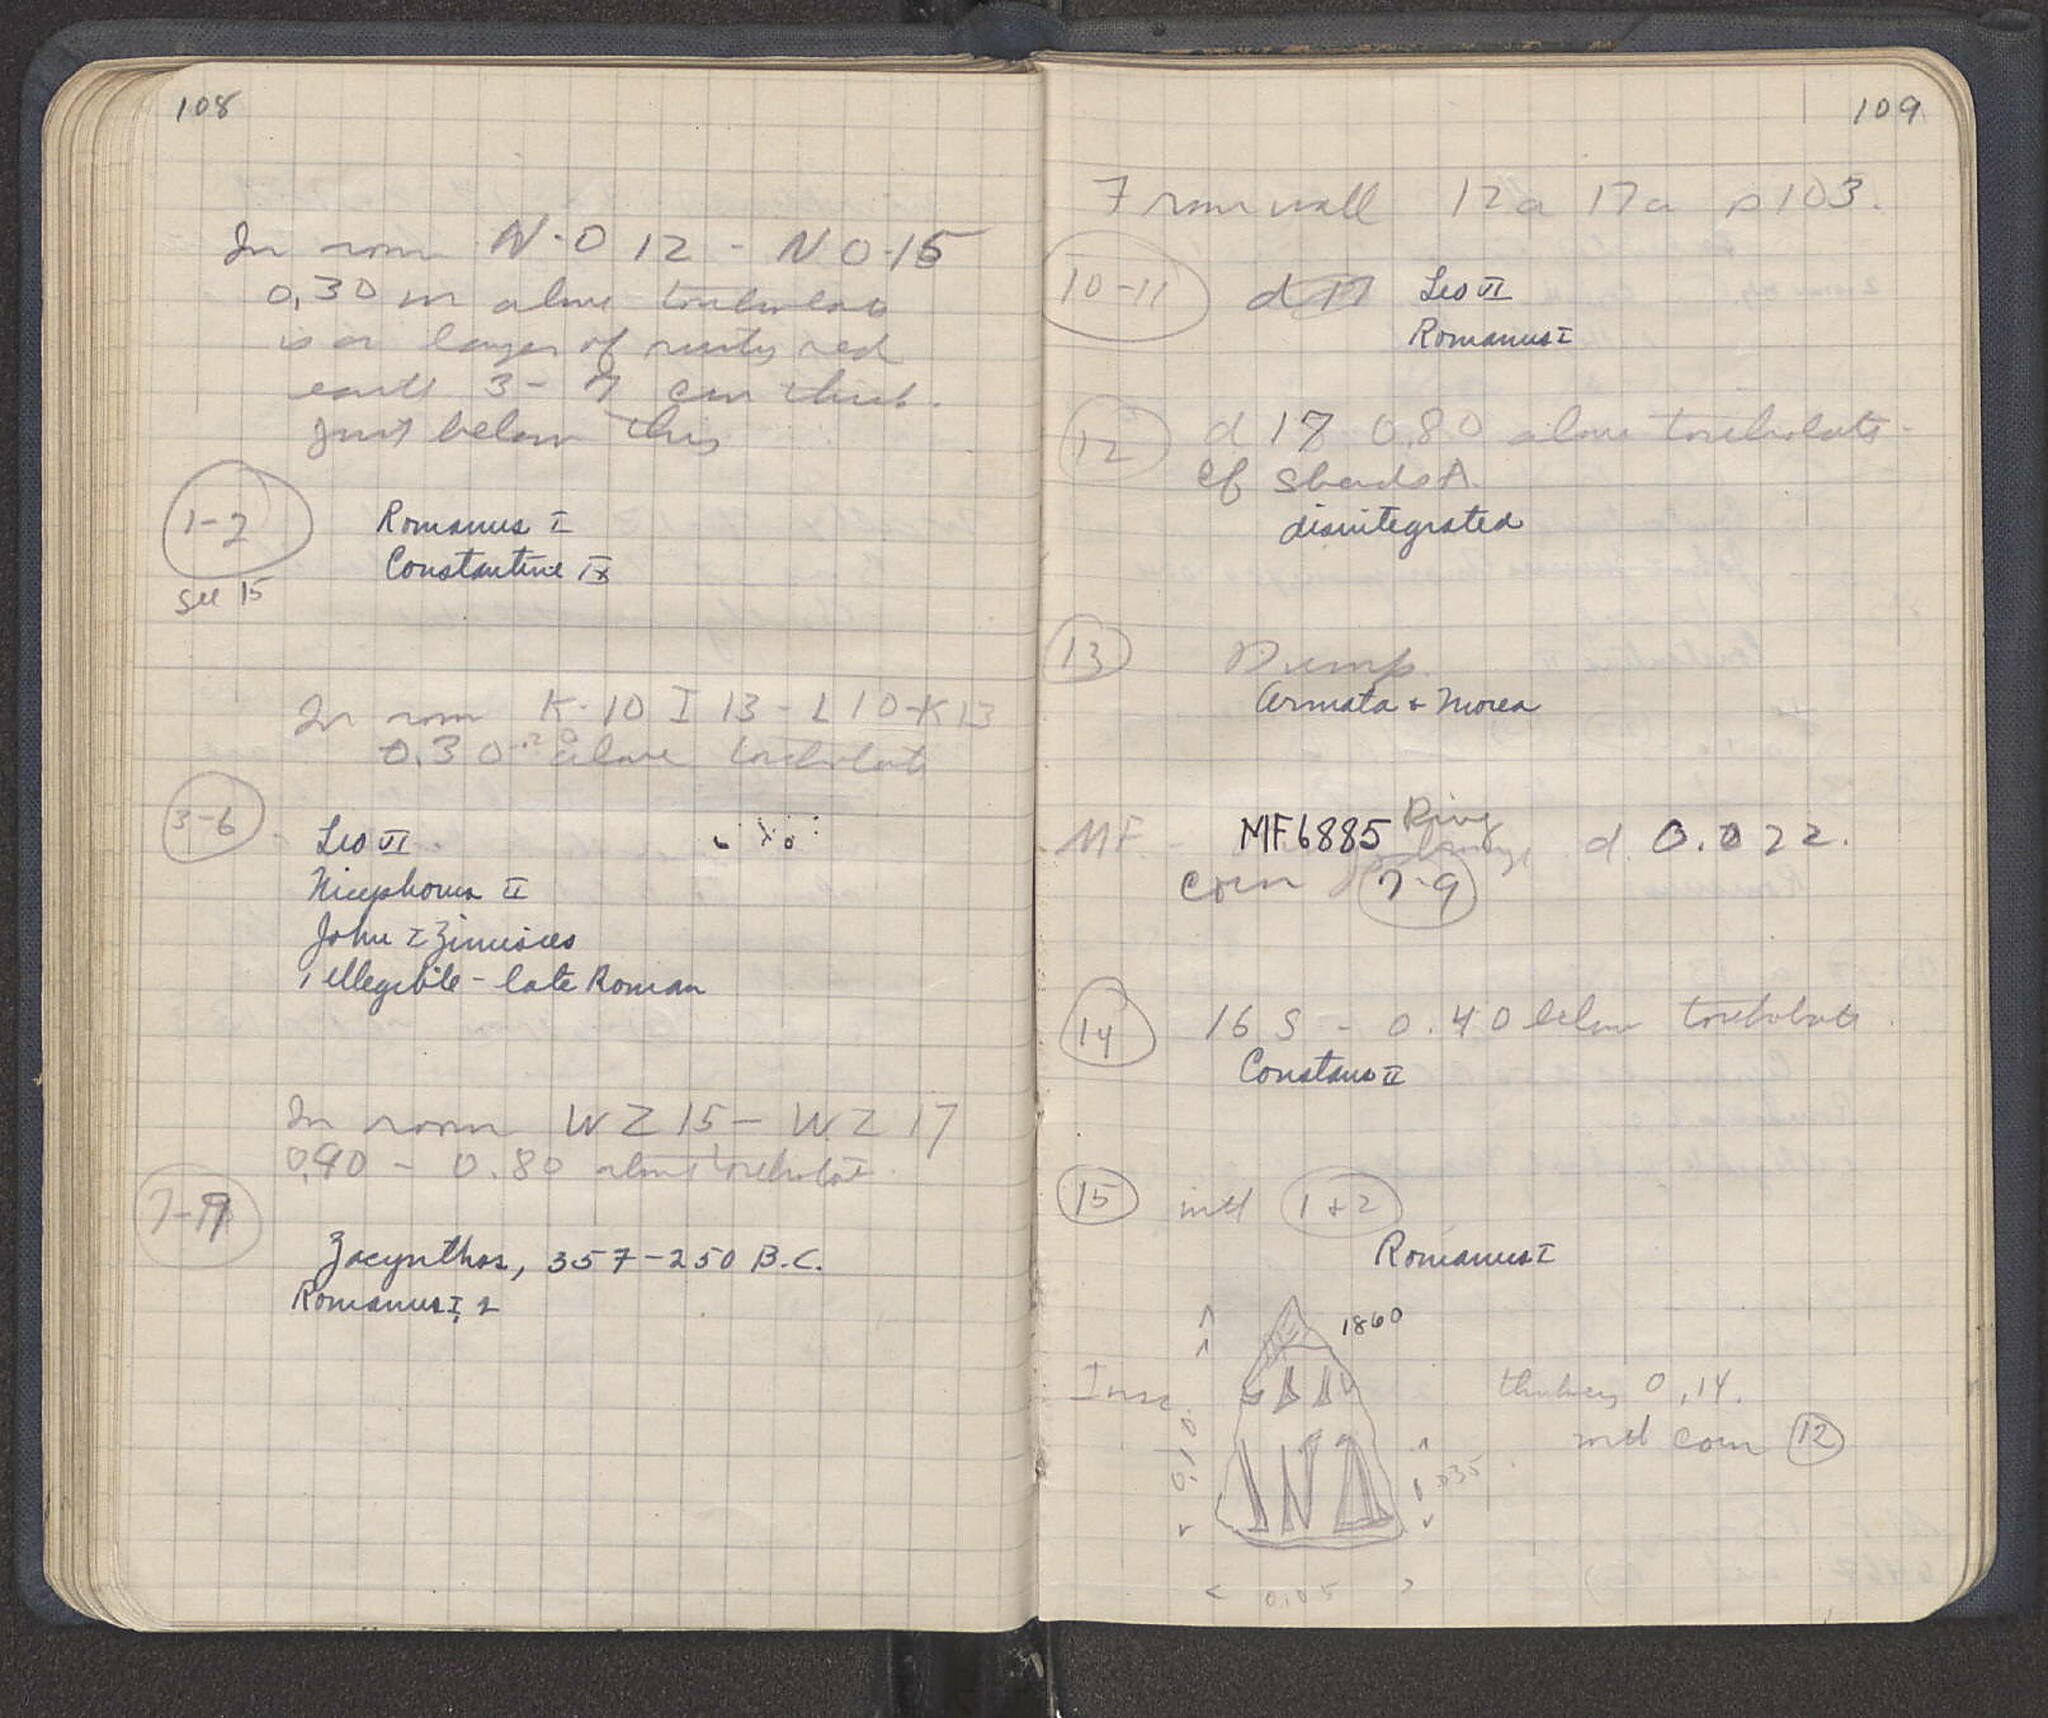 108
In room N-O 12 - N O-15
0,30 m above toichobate
is a layer of rusty red
earth 3- 7 cm thick.
Just below this
1-2
Romanus I
Constantine IX
see 15
In room K-10 I 13 - L 10-K13
0.30 above toichobate
3-6
Leo VI
Nicephorus II
John I Zimisces
1 illegible - late Roman
In room W Z 15 - W Z 17
0.90 - 0.80 above toichobate
7-9
Zacynthos, 357-250 B.C.
Romanus I, 2
109
From wall 12a 17a p 103.
10-11
Leo VI
Romanus I
12 d 17 0.80 above toichobate
Cf sherds A.
disintegrated
13 Dump
Armata + Morea
MF - MF 6885 Ring d. 0.022.
coin 7-9
14 16 S - 0.40 below toichobate.
Constans II
15 with 1+2
Romanus I
1860
Insc
thickness 0,14.
with coin 12
0.10
.035
0.05